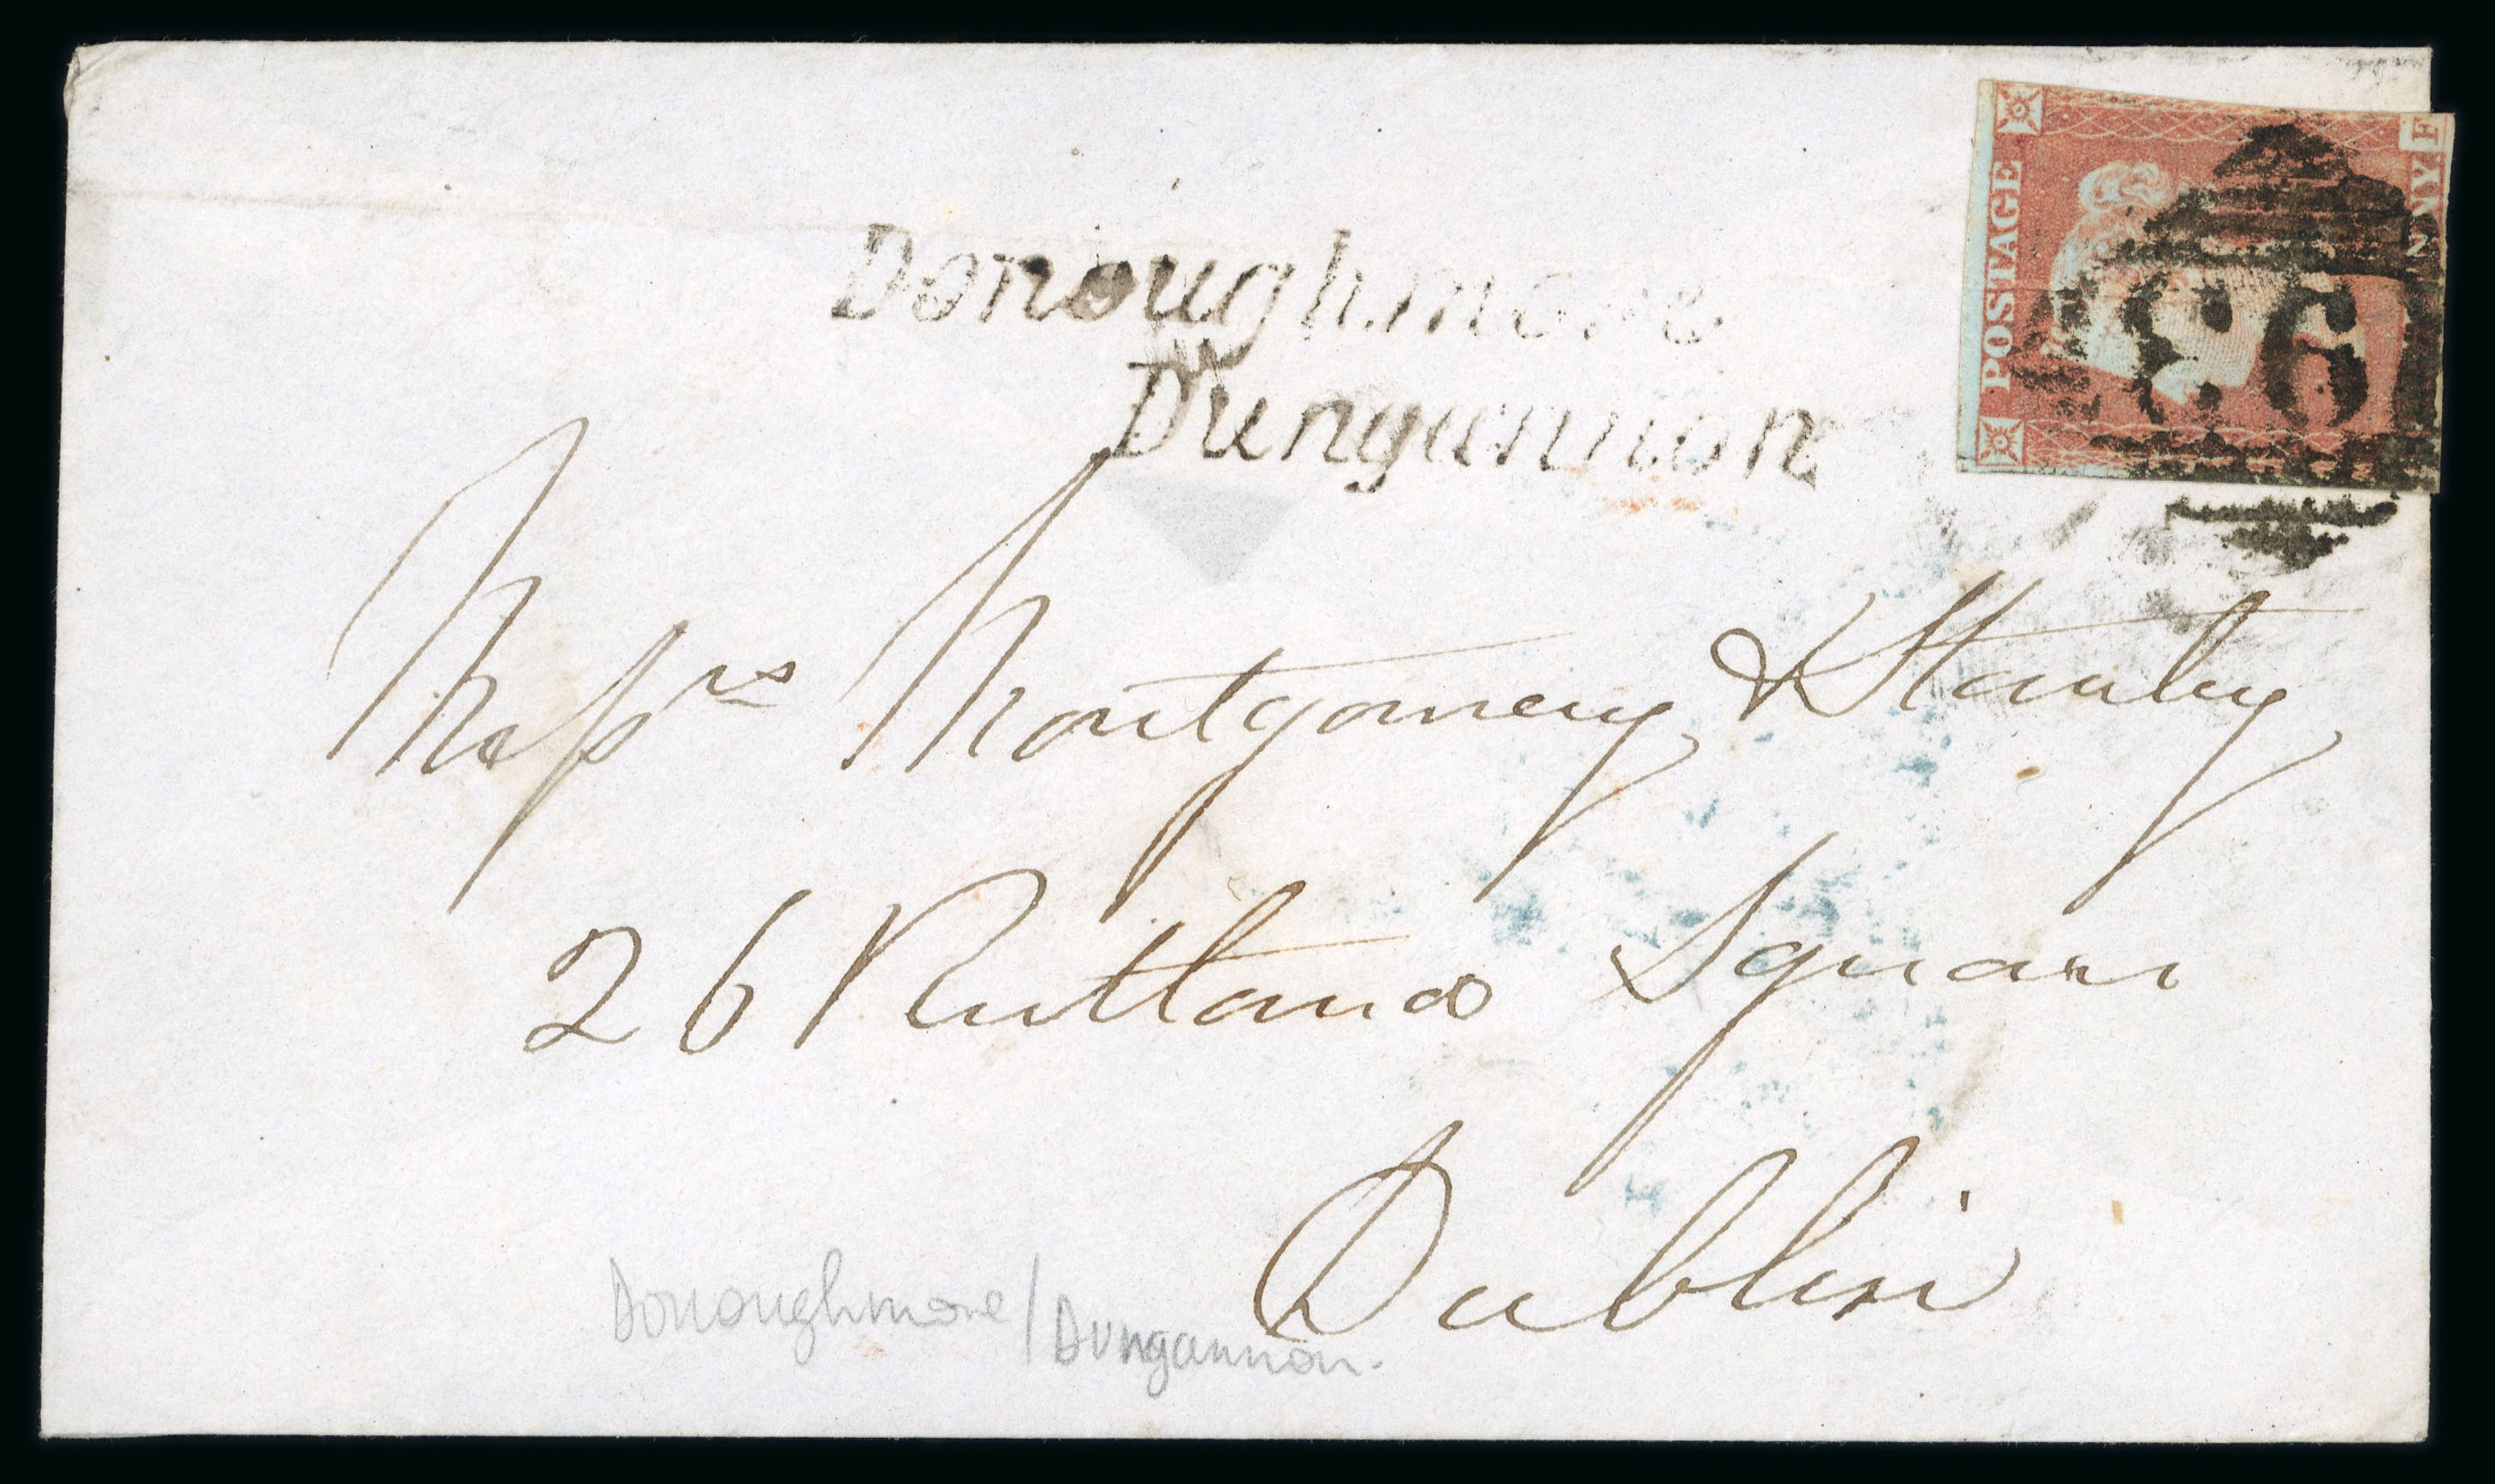 Donoughmore
Dungannon
POSTAGE
Messrs Montgomery & Stanley
26 Rutland Square
Dublin
Donoughmore/Dungannon.